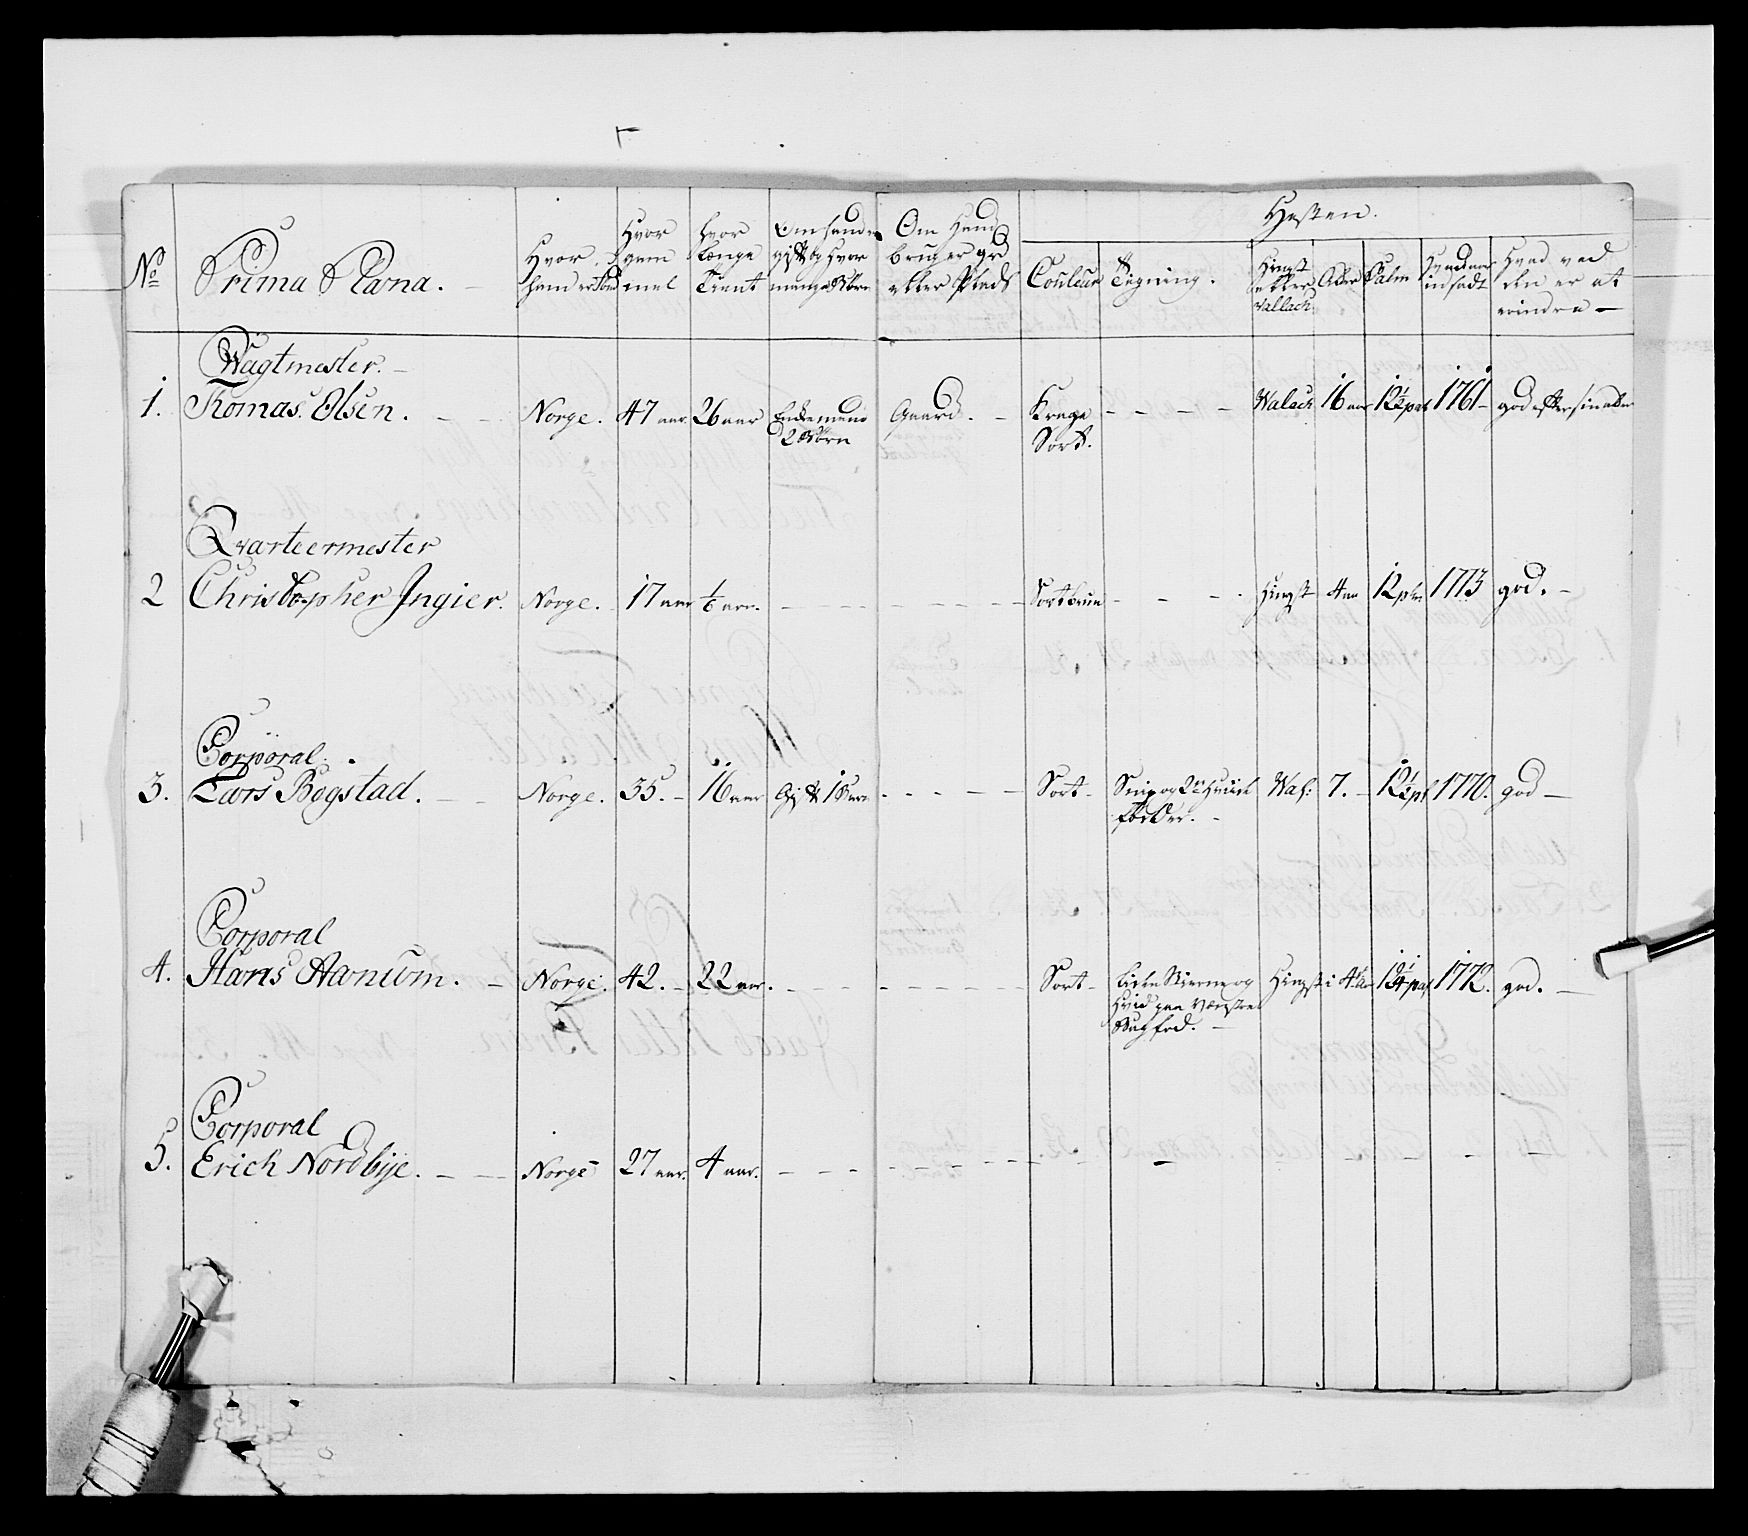 Hesten.
No Prima Plana. Hvor hand er fød Hvor gammel hvor Længe Tient Om hand er gift og hvor mange Børn Om Hand bruger Grd eller Plads Couleur Tegning. Hingst eller Vallach Alder Palm Hvad aar indsadt Hvad ved den er at erindre
Wagtmester.
1. Tomas Olsen. Norge. 47 aar 26 aar Enkemand 2 Børn Gaard. Krage Sort. Walach 16 aar 12½ pal 1761 god efter sin alder
Qvarteermester
2 Christopher Ingier. Norge. 17 aar 1/6 aar. Sortbrun Hingst 4 aar 12 plm 1773 god.
Corporal.
3. Lars Bogstad. Norge. 35. 16 aar Gift 1 Barn Sort Snip og 2 Hviide fødder. Wal: 7. 12½ pl 1770. god
Corporal
4. Hans Aanum. Norge. 42. 22 aar. Sort liden Stierne og Hvid paa Venstre Bagfod. Hingst 4 aar 12¼ pal 1772. god.
Corporal
5. Erich Nordbye. Norge 27 aar. 4 aar.